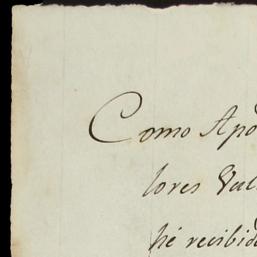 Como Apo
lores Val
hé recibid